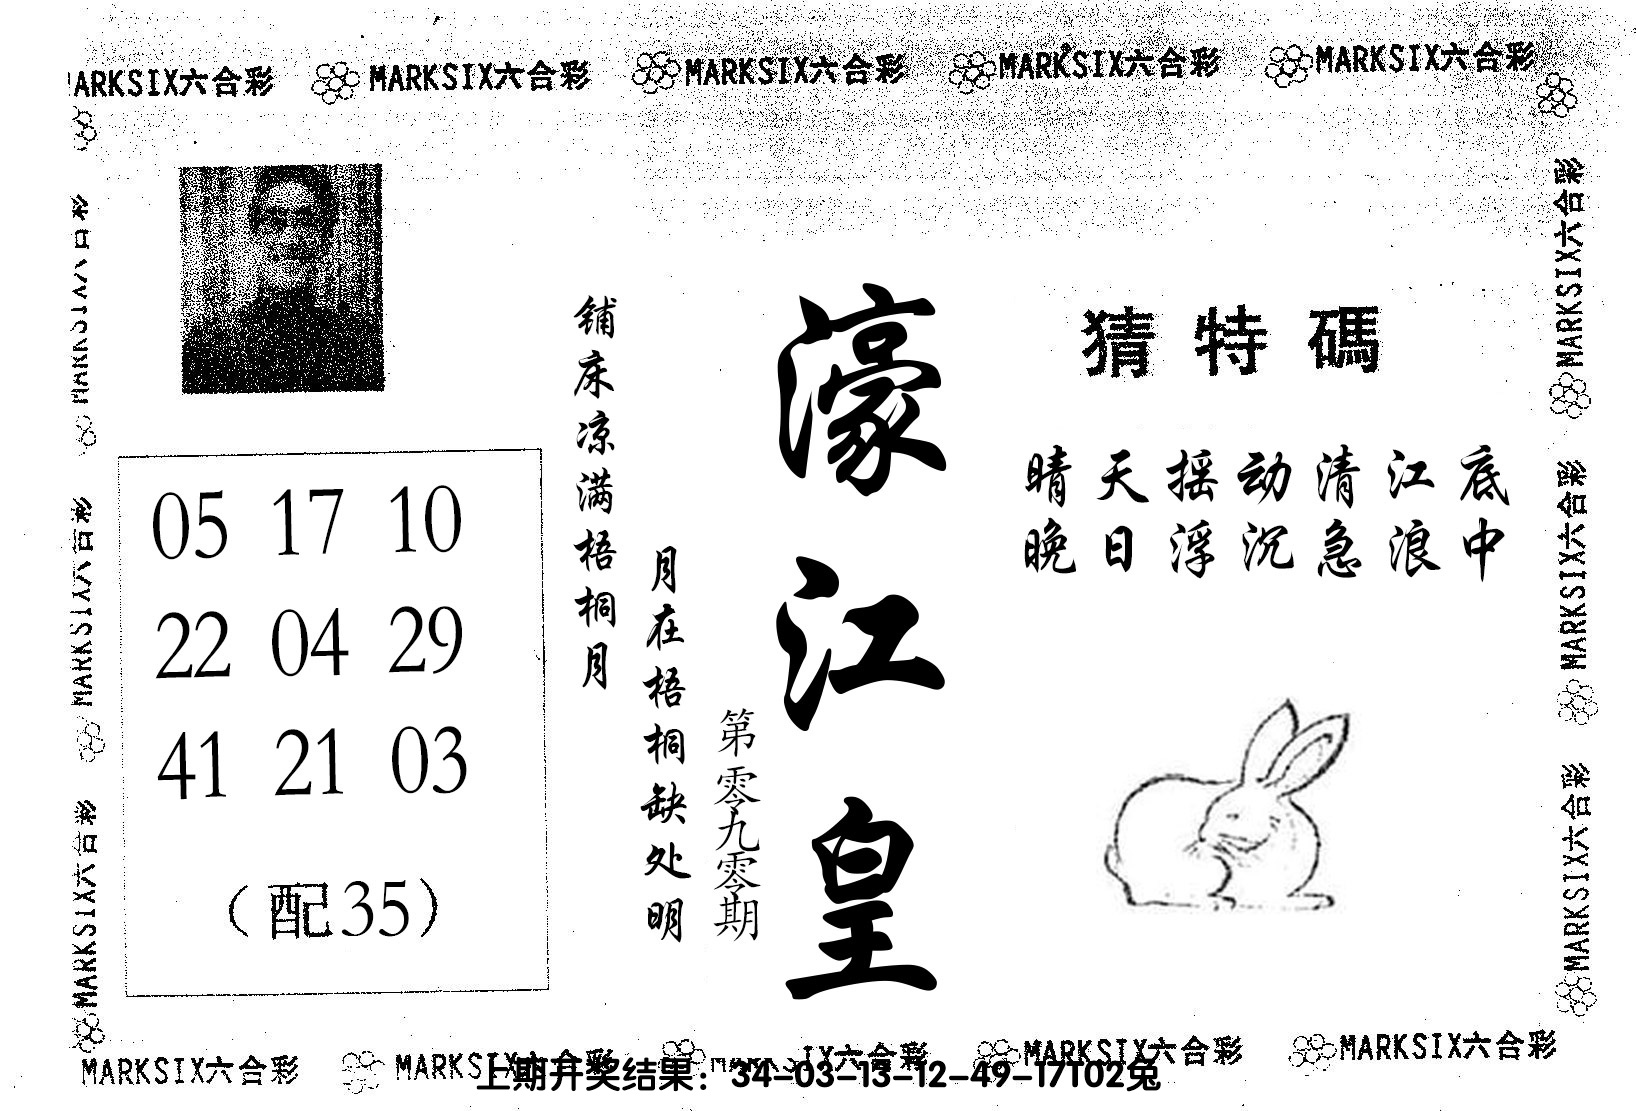 MARKSIX六合彩 MARKSIX六合彩 MARKSIX六合彩 MARKSIX六合彩
MARKSIX六合彩
MARKSIX六合彩
MARKSIX六合彩
猜特碼
晴天摇动清江底
晚日浮沉急浪中
濠江皇
第零九零期
月在梧桐缺处明
铺床凉满梧桐月
05 17 10
22 04 29
41 21 03
（配35）
MARKSIX六合彩
MARKSIX六合彩
MARKSIX六合彩 MARKSIX六合彩 MARKSIX六合彩
上期开奖结果：34-03-13-12-49-17T02兔